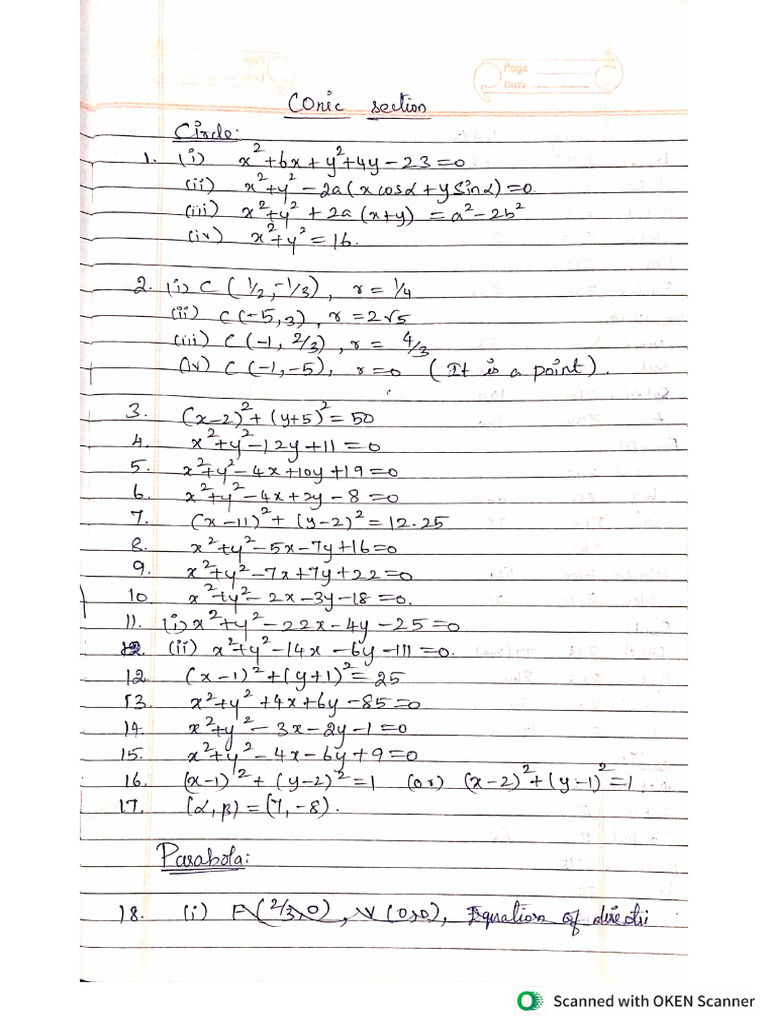 Page
Date
Conic section
Circle:
1. (i) x²+6x+y²+4y-23=0
(ii) x²+y²-2a(x cosα+y sinα)=0.
(iii) x²+y²+2a(x+y) = a²-2b²
(iv) x²+y²=16.
2. (i) C (1/2,-1/3), r = 1/4
(ii) C(-5,3), r=2√5
(iii) C(-1, 2/3), r = 4/3
(iv) C(-1,-5), r=0 (It is a point).
3. (x-2)²+(y+5)²=50
4. x²+y²-12y+11=0
5. x²+y²-4x+10y+19=0
6. x²+y²-4x+2y-8=0
7. (x-11)²+(y-2)²=12.25
8. x²+y²-5x-7y+16=0
9. x²+y²-7x+7y+22=0
10. x²+y²-2x-3y-18=0.
11. (i) x²+y²-22x-4y-25=0
(ii) x²+y²-14x-6y-111=0.
12. (x-1)²+(y+1)²=25
13. x²+y²+4x+6y-85=0
14. x²+y²-3x-2y-1=0
15. x²+y²-4x-6y+9=0
16. (x-1)²+(y-2)²=1 (or) (x-2)²+(y-1)²=1
17. (α,β)=(7,-8).
Parabola:
18. (i) F(2/3,0), V(0,0), Equation of directri
Scanned with OKEN Scanner